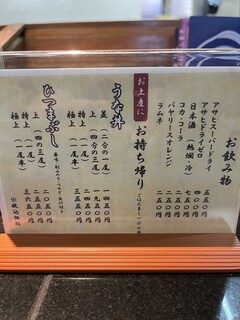 お飲み物
アサヒスーパードライ 五五〇
アサヒドライゼロ 四〇〇
日本酒(熱燗・冷) 七五〇
コカ・コーラ 二五〇
バヤリースオレンジ 二五〇
ラムネ 二〇〇
お土産に
お持ち帰り
ごはんまし一〇〇
うな丼
並(二合の一尾) 一四五〇
上(四合の三尾) 一九五〇
特上(一尾) 二四五〇
極上(一尾半) 三五五〇
ひつまぶし
上(四合の三尾) 二〇五〇
特上(一尾) 二五五〇
極上(一尾半) 三六五〇
※税込価格